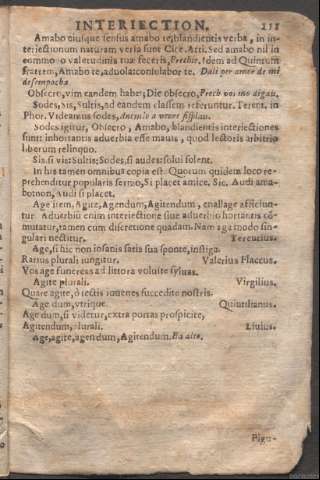 INTERIECTION. 211
Amabo eiusque sensus amabo te, blandientis verba, in in-
teriectionum naturam versa sunt Cice. Atti. Sed amabo nil in
commodo valetudinis tuæ feceris, Prechit. Idem ad Quintum
fratrem, Amabo te, aduola: consulabor te. Dali per amor de mi
desempocha.
Obsecro, vim eandem habet; Dic obsecro, Prech vos mo digau.
Sodes, sis, sultis, ad eandem classem referuntur. Terent. in
Phor. Videamus sodes,
Sodes igitur, Obsecro, Amabo, blandientis interiectiones
sunt: inhortantis aduerbia esse mauis, quod lectoris arbitrio
liberum relinquo.
Sis. si vis: Sultis: Sodes, si audes: solui solent.
In his tamen omnibus copia est. Quorum quidem loco re-
prehenditur popularis sermo, Si placet amice. Sic. Audi ama-
botnon, Audi si placet.
Ape item, Agite, Agendum, Agitendum, enallage afficiun-
tur. Aduerbiũ enim interiectione siue aduerbio hortantis cõ-
mutatur, tamen cum discretione quadam. Nam aga modo sin-
gulari nectitur. Terentius.
Age, si hic non insanis satis sua sponte, instiga.
Rarius plurali iungitur. Valerius Flaccus.
Vos age funereas ad littora voluite syluas.
Agite plurali. Virgilius.
Quare agite, ô tectis iuuenes succedite nostris.
Age dum, vtrique. Quintilianus.
Age dum, si videtur, extra portas prospicite,
Agitendum, plurali. Liuius.
Age, agite, agendum, Agitendum. Ea alto.
Pigu-